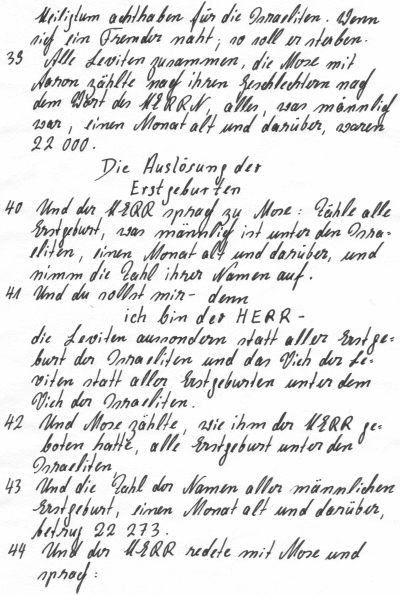 Heiligtum achthaben für die Israeliten. Wenn
sich ein Fremder naht, so soll er sterben.
39 Alle Leviten zusammen, die Mose mit
Aaron zählte nach ihren Geschlechtern nach
dem Wort des HERRN, alles, was männlich
war, einen Monat alt und darüber, waren
22 000.
Die Auslösung der
Erstgeburten
40 Und der HERR sprach zu Mose: Zähle alle
Erstgeburt, was männlich ist unter den Isra=
eliten, einen Monat alt und darüber, und
nimm die Zahl ihrer Namen auf.
41 Und du sollst mir - denn
ich bin der HERR -
die Leviten aussondern statt aller Erstge=
burt der Israeliten und das Vieh der Le=
viten statt aller Erstgeburten unter dem
Vieh der Israeliten.
42 Und Mose zählte, wie ihm der HERR ge=
boten hatte, alle Erstgeburt unter den
Israeliten,
43 Und die Zahl der Namen aller männlichen
Erstgeburt, einen Monat alt und darüber,
betrug 22 273.
44 Und der HERR redete mit Mose und
sprach: